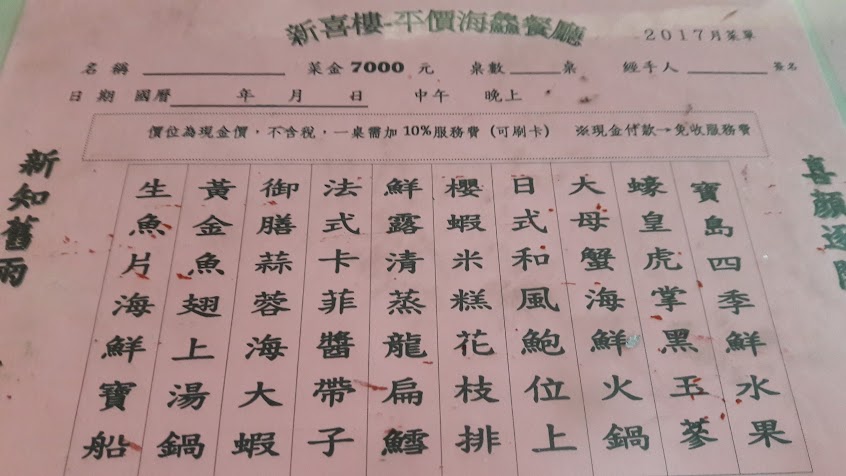 新喜樓-平價海鱻餐廳
2017月菜單
名稱 菜金7000元 桌數 桌 經手人 簽名
日期 國曆 年 月 日 中午 晚上
價位為現金價,不含稅,一桌需加10%服務費(可刷卡) ※現金付款→免收服務費
喜顏逐
寶島四季鮮水果
蠔皇虎掌黑玉蔘
大母蟹海鮮火鍋
日式和風鮑位上
櫻蝦米糕花枝排
鮮露清蒸龍扁鱈
法式卡菲醬帶子
御膳蒜蓉海大蝦
黃金魚翅上湯鍋
生魚片海鮮寶船
新知舊雨